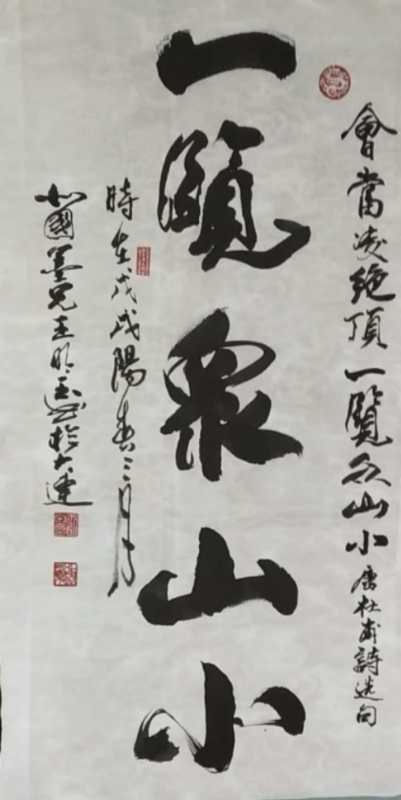 會當凌絶頂一覽众山小唐杜甫詩選句
一覽衆山小
時在戊戌陽春三月
北國墨兄王於大連